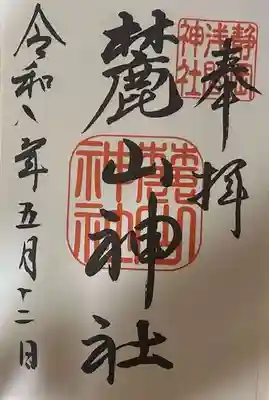 奉拝
静岡浅間神社
麓山神社
麓山神社
令和八年五月十二日